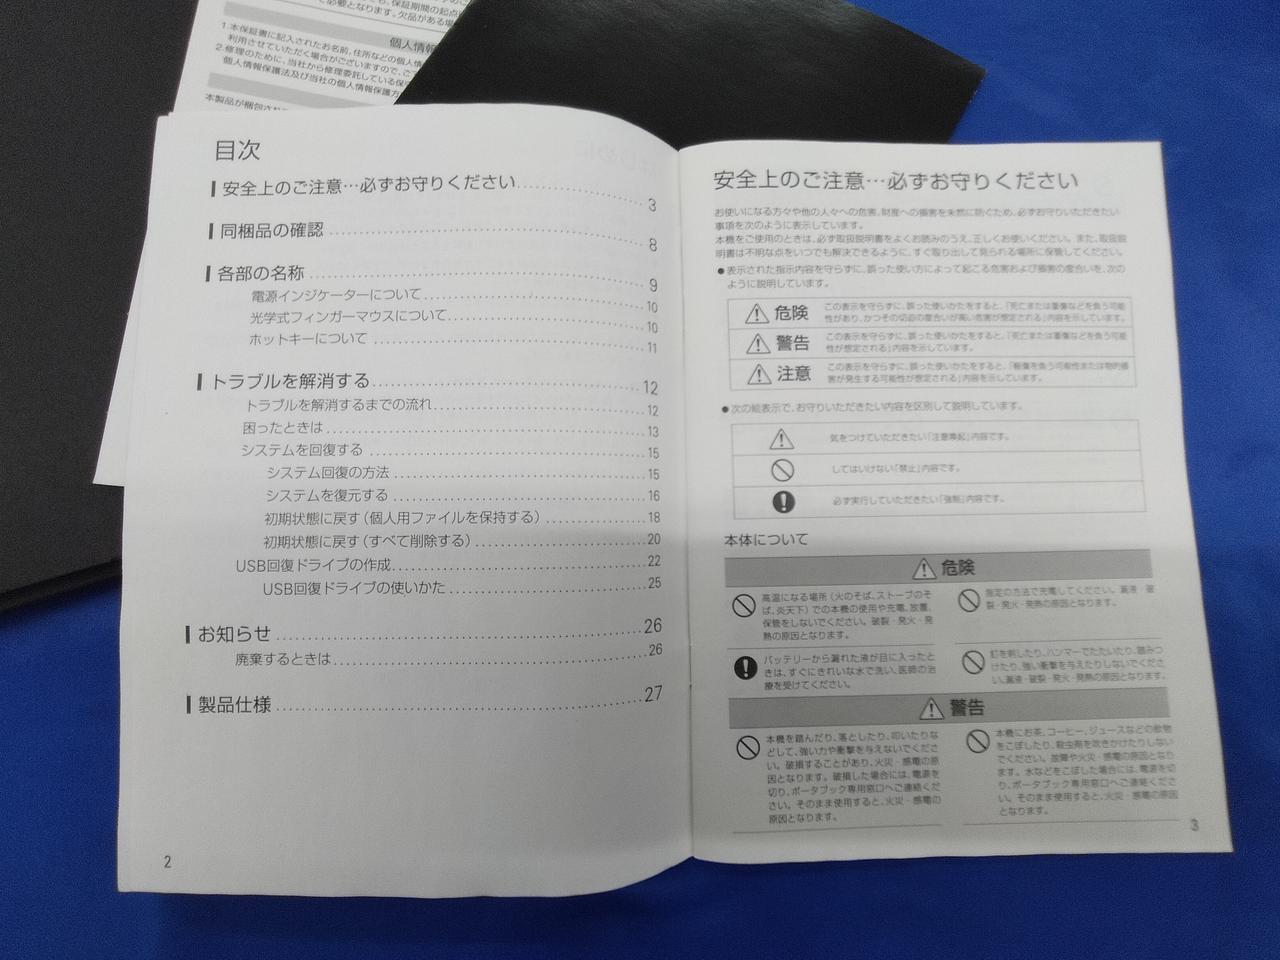 て必要となります。欠品がある場
個人情報
1.本保証書に記入されたお名前、住所などの個人情
利用させていただく場合がございますので、ご
2.修理のために、当社から修理委託している保
個人情報保護法及び当社の個人情報保護方
本製品が梱包され
目次
安全上のご注意…必ずお守りください 3
同梱品の確認 8
各部の名称 9
電源インジケーターについて 10
光学式フィンガーマウスについて 10
ホットキーについて 11
トラブルを解消する 12
トラブルを解消するまでの流れ 12
困ったときは 13
システムを回復する 15
システム回復の方法 15
システムを復元する 16
初期状態に戻す(個人用ファイルを保持する) 18
初期状態に戻す(すべて削除する) 20
USB回復ドライブの作成 22
USB回復ドライブの使いかた 25
お知らせ 26
廃棄するときは 26
製品仕様 27
2
安全上のご注意…必ずお守りください
お使いになる方々や他の人々への危害、財産への損害を未然に防ぐため、必ずお守りいただきたい
事項を次のように表示しています。
本機をご使用のときは、必ず取扱説明書をよくお読みのうえ、正しくお使いください。また、取扱説
明書は不明な点をいつでも解決できるように、すぐ取り出して見られる場所に保管してください。
●表示された指示内容を守らずに、誤った使い方によって起こる危害および損害の度合いを、次の
ように説明しています。
危険
この表示を守らずに、誤った使いかたをすると、「死亡または重傷などを負う可能
性があり、かつその切迫の度合いが高い危害が想定される」内容を示しています。
警告
この表示を守らずに、誤った使いかたをすると、「死亡または重傷などを負う可能
性が想定される」内容を示しています。
注意
この表示を守らずに、誤った使いかたをすると、「軽傷を負う可能性または物的損
害が発生する可能性が想定される」内容を示しています。
●次の絵表示で、お守りいただきたい内容を区別して説明しています。
気をつけていただきたい「注意喚起」内容です。
してはいけない「禁止」内容です。
必ず実行していただきたい「強制」内容です。
本体について
危険
高温になる場所(火のそば、ストーブのそ
ば、炎天下)での本機の使用や充電、放置、
保管をしないでください。破裂・発火・発
熱の原因となります。
指定の方法で充電してください。漏液・破
裂・発火・発熱の原因となります。
バッテリーから漏れた液が目に入ったと
きは、すぐにきれいな水で洗い、医師の治
療を受けてください。
釘を刺したり、ハンマーでたたいたり、踏みつ
けたり、強い衝撃を与えたりしないでくださ
い。漏液・破裂・発火・発熱の原因となります。
警告
本機を踏んだり、落としたり、叩いたりな
どして、強い力や衝撃を与えないでくださ
い。破損することがあり、火災・感電の原
因となります。破損した場合には、電源を
切り、ポータブック専用窓口へご連絡くだ
さい。そのまま使用すると、火災・感電の
原因となります。
本機にお茶、コーヒー、ジュースなどの飲物
をこぼしたり、殺虫剤を吹きかけたりしない
でください。故障や火災・感電の原因となり
ます。水などをこぼした場合には、電源を切
り、ポータブック専用窓口へご連絡くださ
い。そのまま使用すると、火災・感電の原因
となります。
3